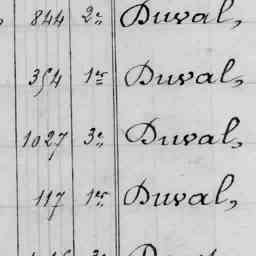 844 2e Duval,
354 1er Duval,
1027 3e Duval,
117 1er Duval,